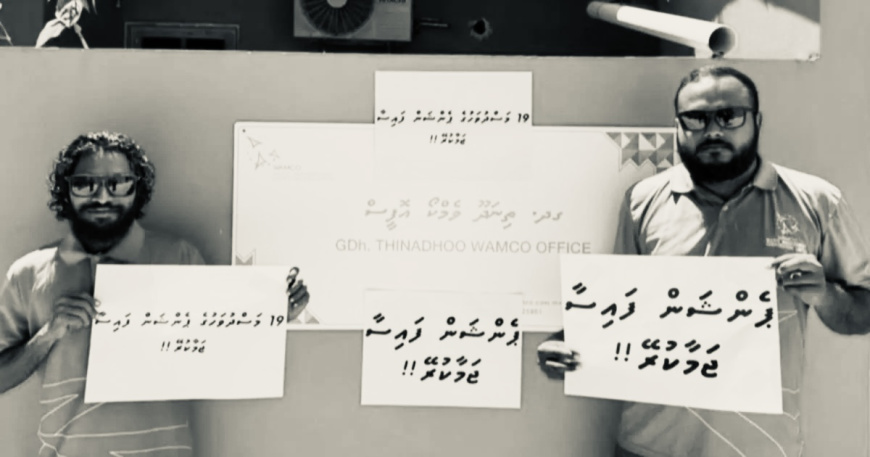 19 މަސްދުވަހުގެ ޕެންޝަން ފައިސާ
ޖަމާކުރޭ!!
ގދ. ތިނަދޫ ވެމްކޯ އޮފީސް
GDh. THINADHOO WAMCO OFFICE
19 މަސްދުވަހުގެ ޕެންޝަން ފައިސާ
ޖަމާކުރޭ!!
ޕެންޝަން ފައިސާ
ޖަމާކުރޭ!!
ޕެންޝަން ފައިސާ
ޖަމާކުރޭ!!